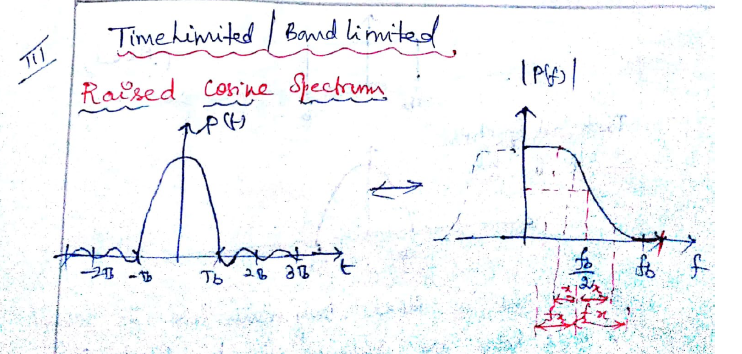 TimeLimited / Band limited,
Raised Cosine Spectrum
|P(f)|
P(t)
-2Tb -Tb Tb 2Tb 3Tb t
fb/2 fb f
x x
fx fx